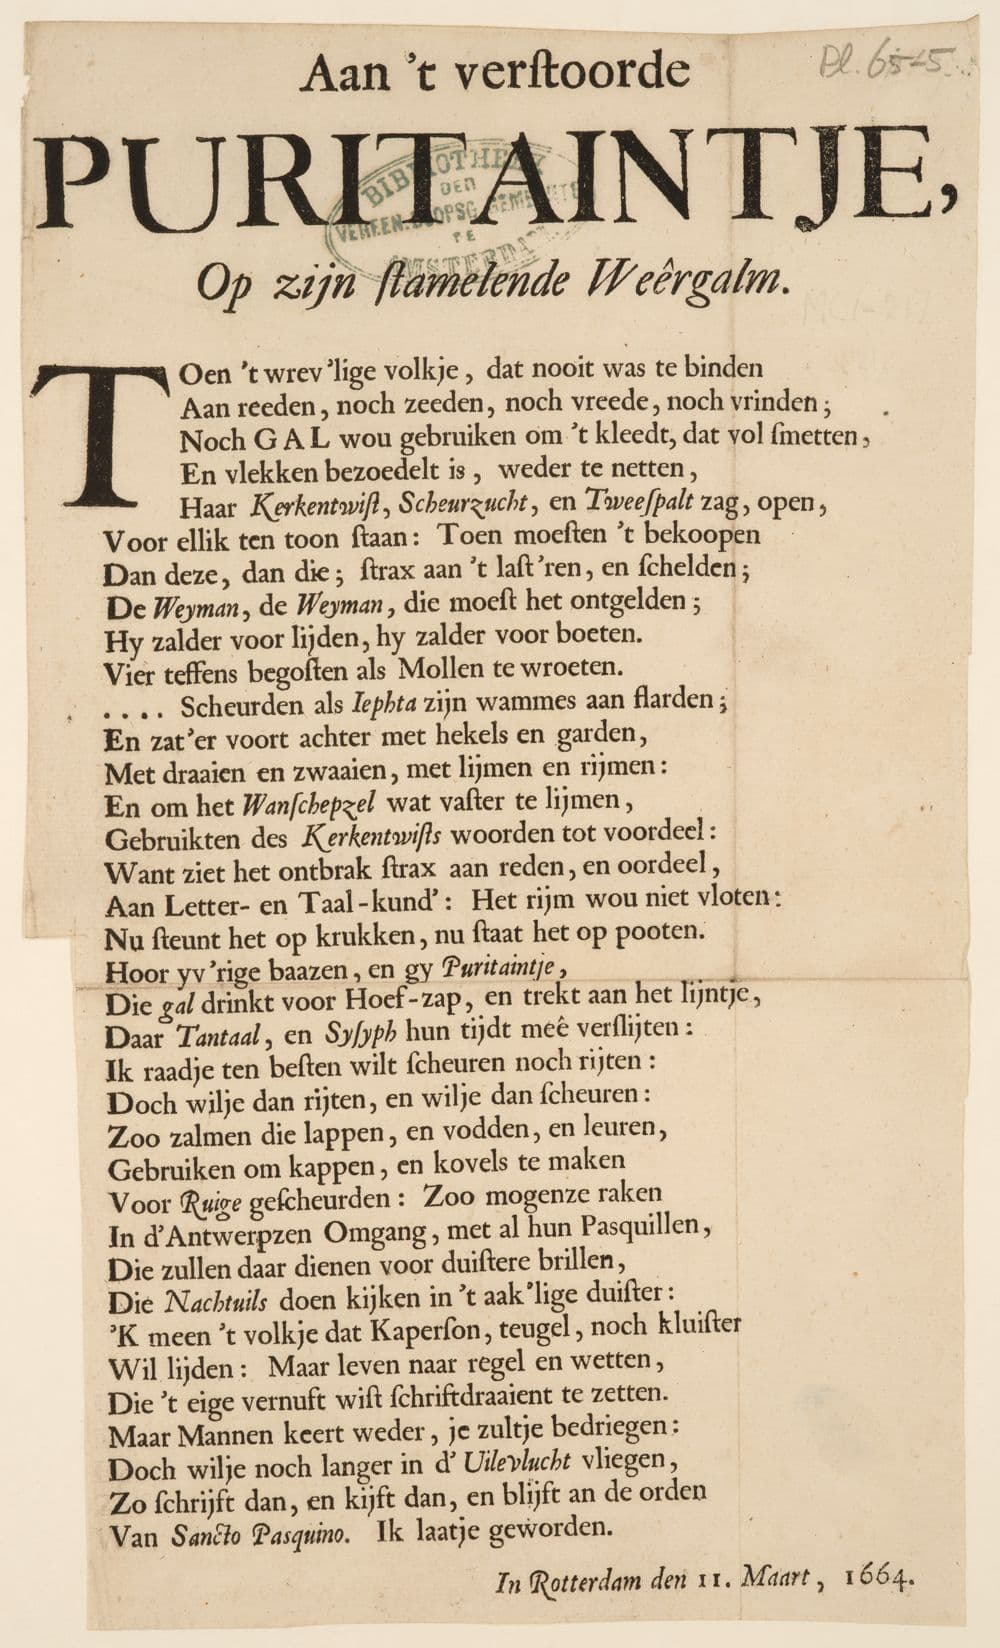 Aan 't verſtoorde
Pl. 65-5
PURITAINTJE,
BIBLIOTHEEK
DER
VEREEN. DOOPSG. GEMEENTE
TE
AMSTERDAM
Op zijn ſtamelende Weêrgalm.
TOen 't wrev'lige volkje, dat nooit was te binden
Aan reeden, noch zeeden, noch vreede, noch vrinden;
Noch GAL wou gebruiken om 't kleedt, dat vol ſmetten,
En vlekken bezoedelt is, weder te netten,
Haar Kerkentwiſt, Scheurzucht, en Tweeſpalt zag, open,
Voor ellik ten toon ſtaan: Toen moeſten 't bekoopen
Dan deze, dan die; ſtrax aan 't laſt'ren, en ſchelden;
De Weyman, de Weyman, die moeſt het ontgelden;
Hy zalder voor lijden, hy zalder voor boeten.
Vier teffens begoſten als Mollen te wroeten.
.... Scheurden als Iephta zijn wammes aan flarden;
En zat'er voort achter met hekels en garden,
Met draaien en zwaaien, met lijmen en rijmen:
En om het Wanſchepzel wat vaſter te lijmen,
Gebruikten des Kerkentwiſts woorden tot voordeel:
Want ziet het ontbrak ſtrax aan reden, en oordeel,
Aan Letter- en Taal-kund': Het rijm wou niet vloten:
Nu ſteunt het op krukken, nu ſtaat het op pooten.
Hoor yv'rige baazen, en gy Puritaintje,
Die gal drinkt voor Hoef-zap, en trekt aan het lijntje,
Daar Tantaal, en Syſyph hun tijdt meê verſlijten:
Ik raadje ten beſten wilt ſcheuren noch rijten:
Doch wilje dan rijten, en wilje dan ſcheuren:
Zoo zalmen die lappen, en vodden, en leuren,
Gebruiken om kappen, en kovels te maken
Voor Ruige geſcheurden: Zoo mogenze raken
In d'Antwerpzen Omgang, met al hun Pasquillen,
Die zullen daar dienen voor duiſtere brillen,
Die Nachtuils doen kijken in 't aak'lige duiſter:
'K meen 't volkje dat Kaperſon, teugel, noch kluiſter
Wil lijden: Maar leven naar regel en wetten,
Die 't eige vernuft wiſt ſchriftdraaient te zetten.
Maar Mannen keert weder, je zultje bedriegen:
Doch wilje noch langer in d' Uilevlucht vliegen,
Zo ſchrijft dan, en kijft dan, en blijft an de orden
Van Sancto Pasquino. Ik laatje geworden.
In Rotterdam den 11. Maart, 1664.